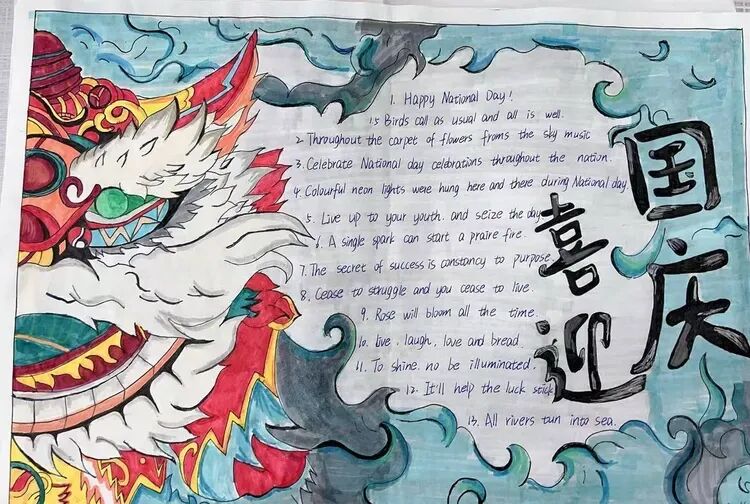 1. Happy National Day!
1.5 Birds call as usual and all is well.
2. Throughout the carpet of flowers froms the sky music
3. Celebrate National day celebrations throughout the nation.
4. Colourful neon lights were hung here and there during National day.
5. Live up to your youth. and seize the day
6. A single spark can start a praire fire.
7. The secret of success is constancy to purpose
8. Cease to struggle and you cease to live.
9. Rose will bloom all the time.
10. live, laugh, love and bread.
11. To shine, no be illuminated.
12. It'll help the luck stick
13. All rivers tun into sea.
喜迎
国庆